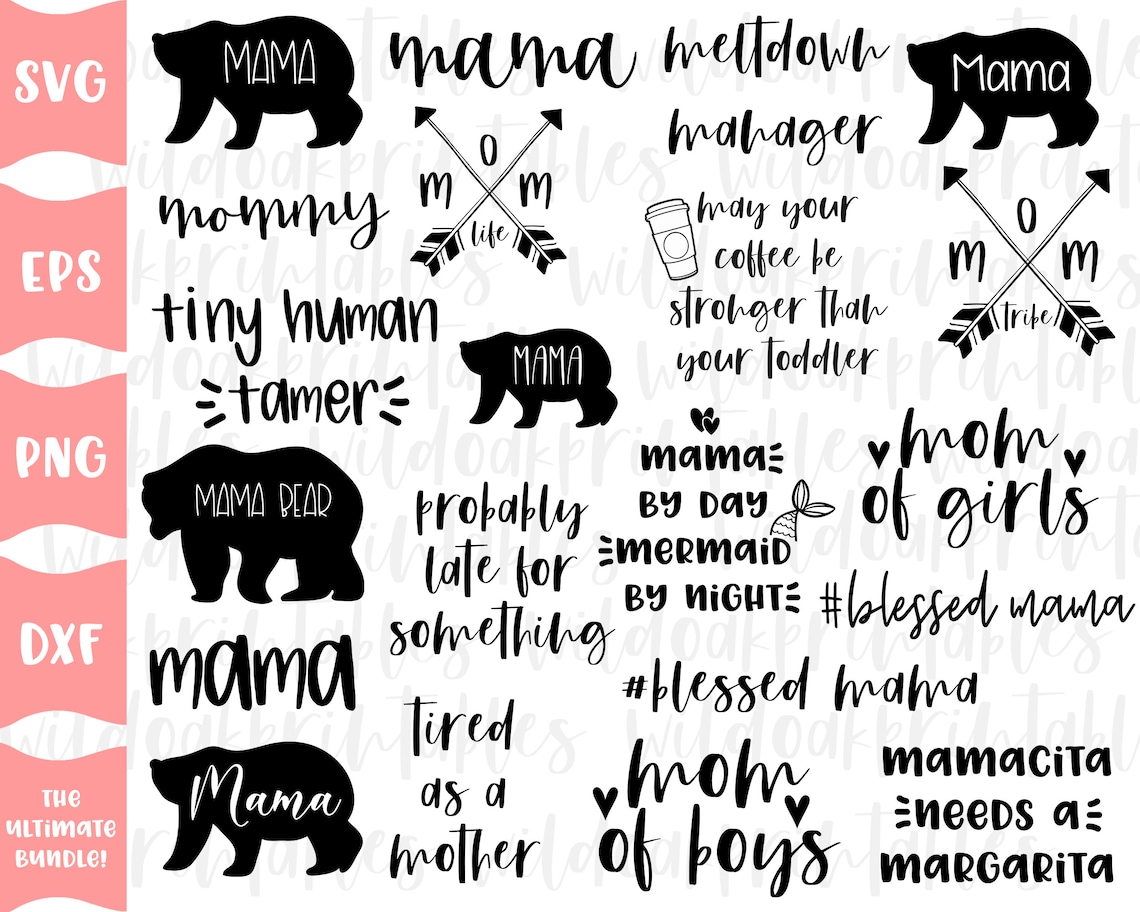 SVG
EPS
PNG
DXF
THE
ULTIMATE
BUNDLE!
MAMA
mama
meltdown
manager
Mama
mommy
M O M
life
may your
coffee be
stronger than
your toddler
M O M
tribe
tiny human
tamer
MAMA
MAMA BEAR
probably
late for
something
mama
BY DAY
mermaid
BY NIGHT
mom
of girls
#blessed mama
mama
#blessed mama
Mama
tired
as a
mother
mom
of boys
mamacita
needs a
margarita
wildoakprintables